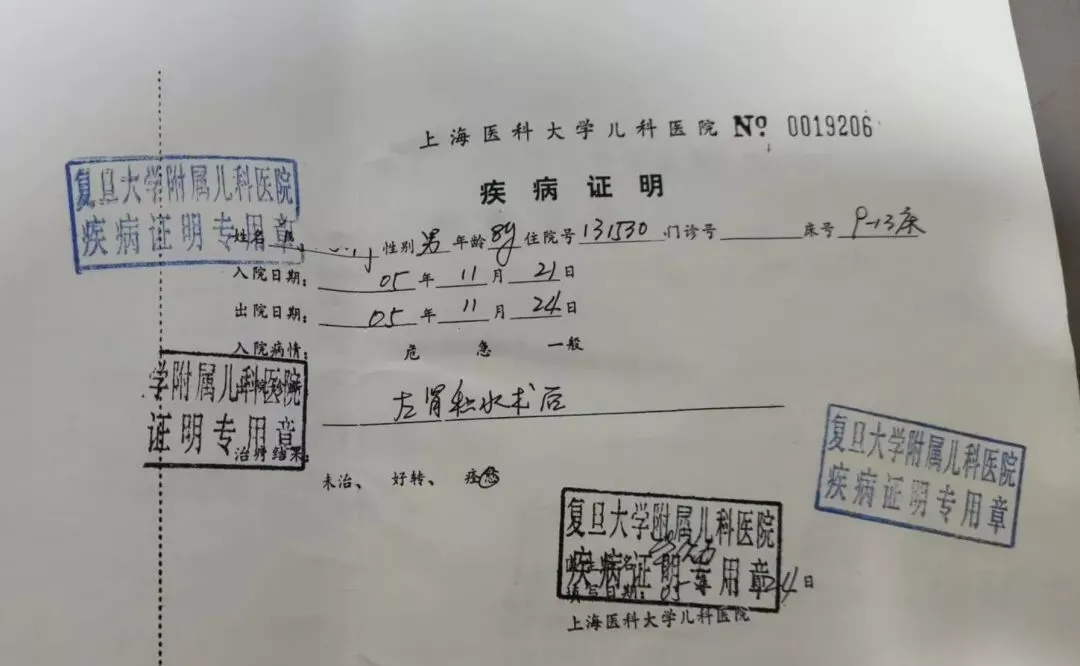 上海医科大学儿科医院 No. 0019206
疾病证明
复旦大学附属儿科医院
疾病证明专用章
姓名 性别 男 年龄 8y 住院号 131530 门诊号 床号 9-13床
入院日期: 05 年 11 月 21 日
出院日期: 05 年 11 月 24 日
入院病情: 危 急 一般
学附属儿科医院
证明专用章
左肾积水术后
治疗结果:
未治、 好转、 痊愈
复旦大学附属儿科医院
疾病证明专用章
复旦大学附属儿科医院
疾病证明专用章
填写日期: 05 24 日
上海医科大学儿科医院